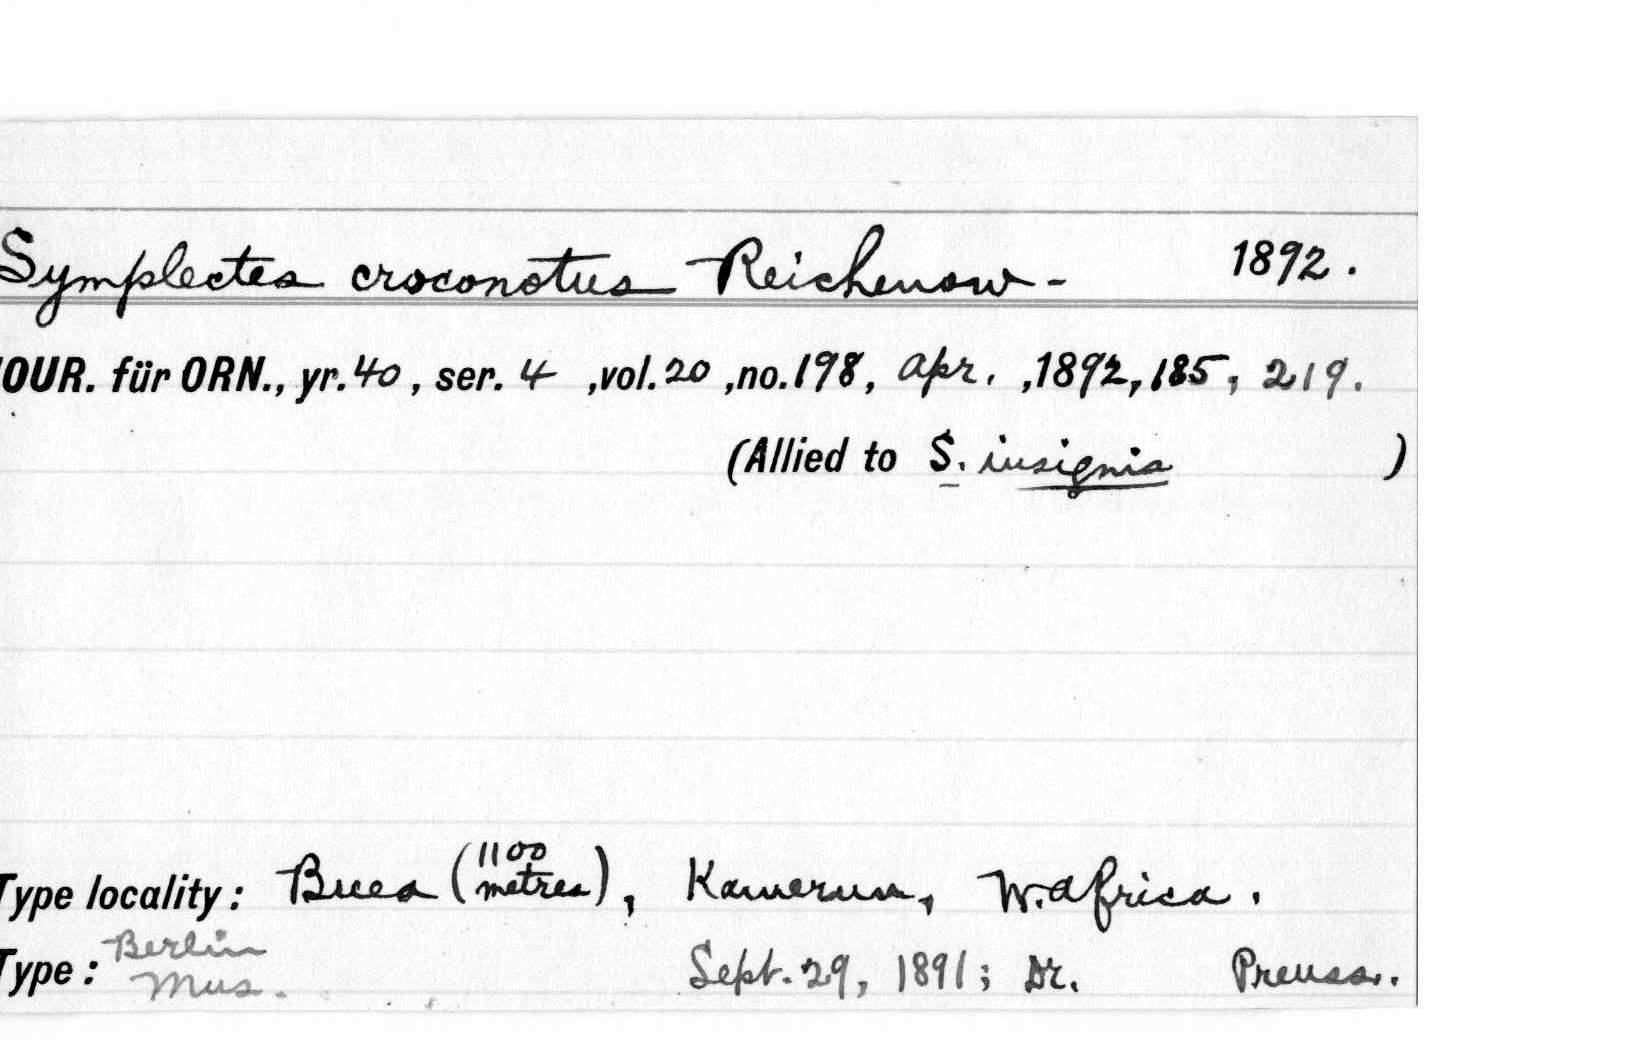 Symplectes croconotus Reichenow - 1892.
OUR. für ORN., yr. 40, ser. 4 ,vol. 20 ,no. 198, Apr. ,1892, 185, 219.
(Allied to S. insignis )
Type locality: Buea (1100 metres), Kamerun, W. Africa.
Type: Berlin Mus. Sept. 29, 1891; Dr. Preuss.